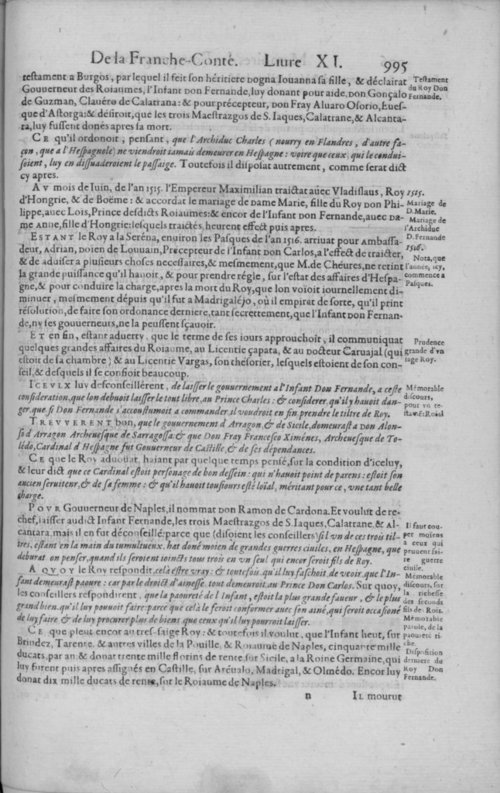 De la Franche-Conté. Liure XI. 995
testament a Burgos, par lequel il feit son héritiere dogna Iouanna sa fille, & déclairat
Gouuerneur des Roiaumes, l'Infant don Fernande, luy donant pour aide, don Gonçalo
de Guzman, Clauéro de Calatrana: & pour précepteur, don Fray Aluaro Osorio, Euesque
d'Astorga: & désiroit, que les trois Maestrazgos de S. Iaques, Calatrane, & Alcantara,
luy fussent donés apres sa mort.
Testament du Roy Don Fernande.
CE qu'il ordonoit, pensant, que l'Archiduc Charles (nourry en Flandres, d'autre façon,
que a l'Hespagnole) ne viendroit iamais demeurer en Hespagne: voire que ceux, qui le conduisoient,
luy en dissuaderoient le passaige. Toutefois il disposat autrement, comme serat dict
cy apres.
AV mois de Iuin, de l'an 1515. l'Empereur Maximilian traictat auec Vladislaus, Roy
d'Hongrie, & de Boëme: & accordat le mariage de dame Marie, fille du Roy don Philippe,
auec Lois, Prince desdicts Roiaumes: & encor de l'Infant don Fernande, auec dame
Anne, fille d'Hongrie: lesquels traictés heurent effect puis apres.
1515.
Mariage de D. Marie.
Mariage de l'Archiduc D. Fernande
ESTANT le Roy a la Seréna, enuiron les Pasques de l'an 1516. arriuat pour Ambassadeur,
Adrian, doien de Louuain, Précepteur de l'Infant don Carlos, a l'effect de traicter,
& de aduiser a plusieurs choses necessaires, & mesmement, que M. de Chéures, ne retint
la grande puissance qu'il hauoit, & pour prendre régle, sur l'estat des affaires d'Hespagne,
& pour conduire la charge, apres la mort du Roy, que lon voioit iournellement diminuer,
mesmement dépuis qu'il fut a Madrigaléjo, où il empirat de sorte, qu'il print
résolution, de faire son ordonance derniere, tant secrettement, que l'Infant don Fernande,
ny ses gouuerneurs, ne la peussent sçauoir.
1516.
Nota, que l'année, icy, commence a Pasques.
ET en fin, estant aduerty, que le terme de ses iours approuchoit, il communiquat
quelques grandes affaires du Roiaume, au Licentie çapata, & au docteur Caruajal (qui
estoit de sa chambre) & au Licentie Vargas, son thésorier, lesquels estoient de son conseil,
& desquels il se confioit beaucoup.
Prudence grande d'vn sage Roy.
ICEVLX luy desconseillérent, de laisser le gouuernement a l'Infant Don Fernande, a ceste
consideration, que lon debuoit laisser le tout libre, au Prince Charles: & considerer, qu'il y hauoit danger,
que si Don Fernande s'accoustumoit a commander, il voudroit en fin, prendre le tiltre de Roy.
Mémorable discours, pour vn
TREVVERENT bon, que le gouuernement d'Arragon, & de Sicile, demeurast a don Alonso
d'Arragon Archeuesque de Sarragossa: & que Don Fray Francesco Ximénes, Archeuesque de Toledo,
Cardinal d'Hespagne fut Gouuerneur de Castille, & de ses dépendances.
CE que le Roy aduouat, haiant par quelque temps pensé, sur la condition d'iceluy,
& leur dict que ce Cardinal estoit personage de bon dessein: qui n'hauoit point de parens: estoit son
ancien seruiteur, & de sa femme: & qu'il hauoit tousiours esté loïal, méritant pour ce, vne tant belle
charge.
POVR Gouuerneur de Naples, il nommat don Ramon de Cardona. Et voulut de rechef,
laisser audict Infant Fernande, les trois Maestrazgos de S. Iaques, Calatrane, & Alcantara,
mais il en fut déconseillé: parce que (disoient les conseillers) si l'vn de ces trois tiltres,
estant en la main du tumultueux, hat doné moien de grandes guerres ciuiles, en Hespagne, que
deburat on penser, quand ils seroient ioincts tous trois en vn seul qui encor seroit fils de Roy.
Il faut couper moiens a ceux qui peuuent faire guerre ciuile.
A QVOY le Roy respondit, celà estre vray: & toutefois qu'il luy faschoit, de veoir, que l'Infant
demeurast paoure: car par le droict d'ainesse, tout demeuroit au Prince Don Carlos. Sur quoy,
les conseillers respondirent, que la paoureté de l'Infant, estoit la plus grande faueur, & le plus
grand bien, qu'il luy pouuoit faire: parce que celà le feroit conformer auec son ainé, qui seroit occasioné
de luy faire, & de luy procurer plus de biens que ceux qu'il luy pourroit laisser.
Mémorable discours, sur la richesse des seconds fils de Rois.
CE que pleut encor au tres-saige Roy: & toutefois il voulut, que l'Infant heut, sur
Brindez, Tarente, & autres villes de la Pouille, & Roiaume de Naples, cinquante mille
ducats, par an: & donat trente mille florins de rente, sur Sicile, a la Roine Germaine, qui
luy furent puis apres assignés en Castille, sur Aréualo, Madrigal, & Olmédo. Encor luy
donat dix mille ducats de rente, sur le Roiaume de Naples.
Mémorable parole, de la paoureté riche.
Disposition derniere du Roy Don Fernande.
n IL mourut